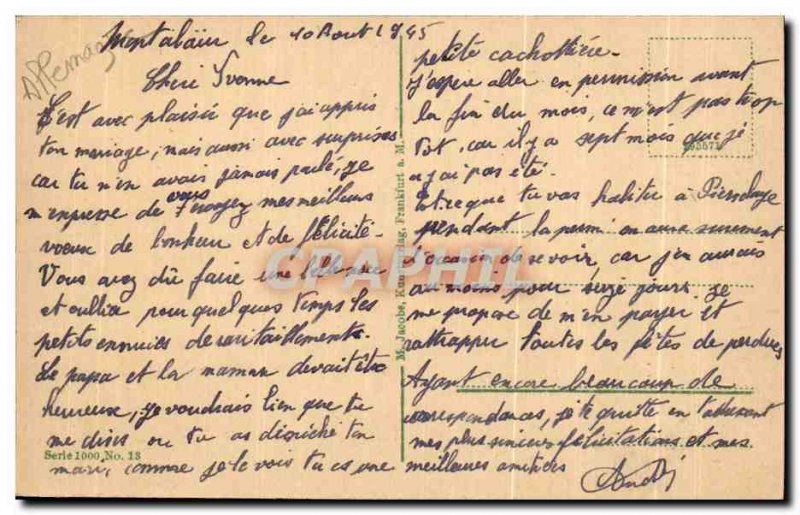 Allemagne
Montabaür le 10 Aout 1945
Cheri Yvonne
C'est avec plaisir que j'ai appris
ton mariage, mais aussi avec surprises
car tu m'en avais jamais parlé, je
m'empresse de vous envoyez mes meilleurs
voeux de bonheur et de félicité-
Vous avez dû faire une belle noce
et oublier pour quelques temps les
petits ennuies de ravitaillements.
Le papa et la maman devait être
heureux, je voudrais bien que tu
me dises ou tu as déniché ton
mari, comme je le vois tu es une
petite cachottière-
J'espère aller en permission avant
la fin du mois, ce n'est pas trop
tôt, car il y a sept mois que je
n'y ai pas été.
Est ce que tu vas habiter à Pierrelaye
pendant la permi on aura surement
l'occasion de se voir, car j'en aurais
au moins pour seize jours. je
me propose de m'en payer et
rattrapper toutes les fêtes de perdues
Ayant encore beaucoup de
correspondances, je te quitte en t'adressant
mes plus sincères félicitations et mes
meilleures amitiées
André
M. Jacobs, Frankfurt a. M.
Serie 1000, No. 13
CPAPHIL